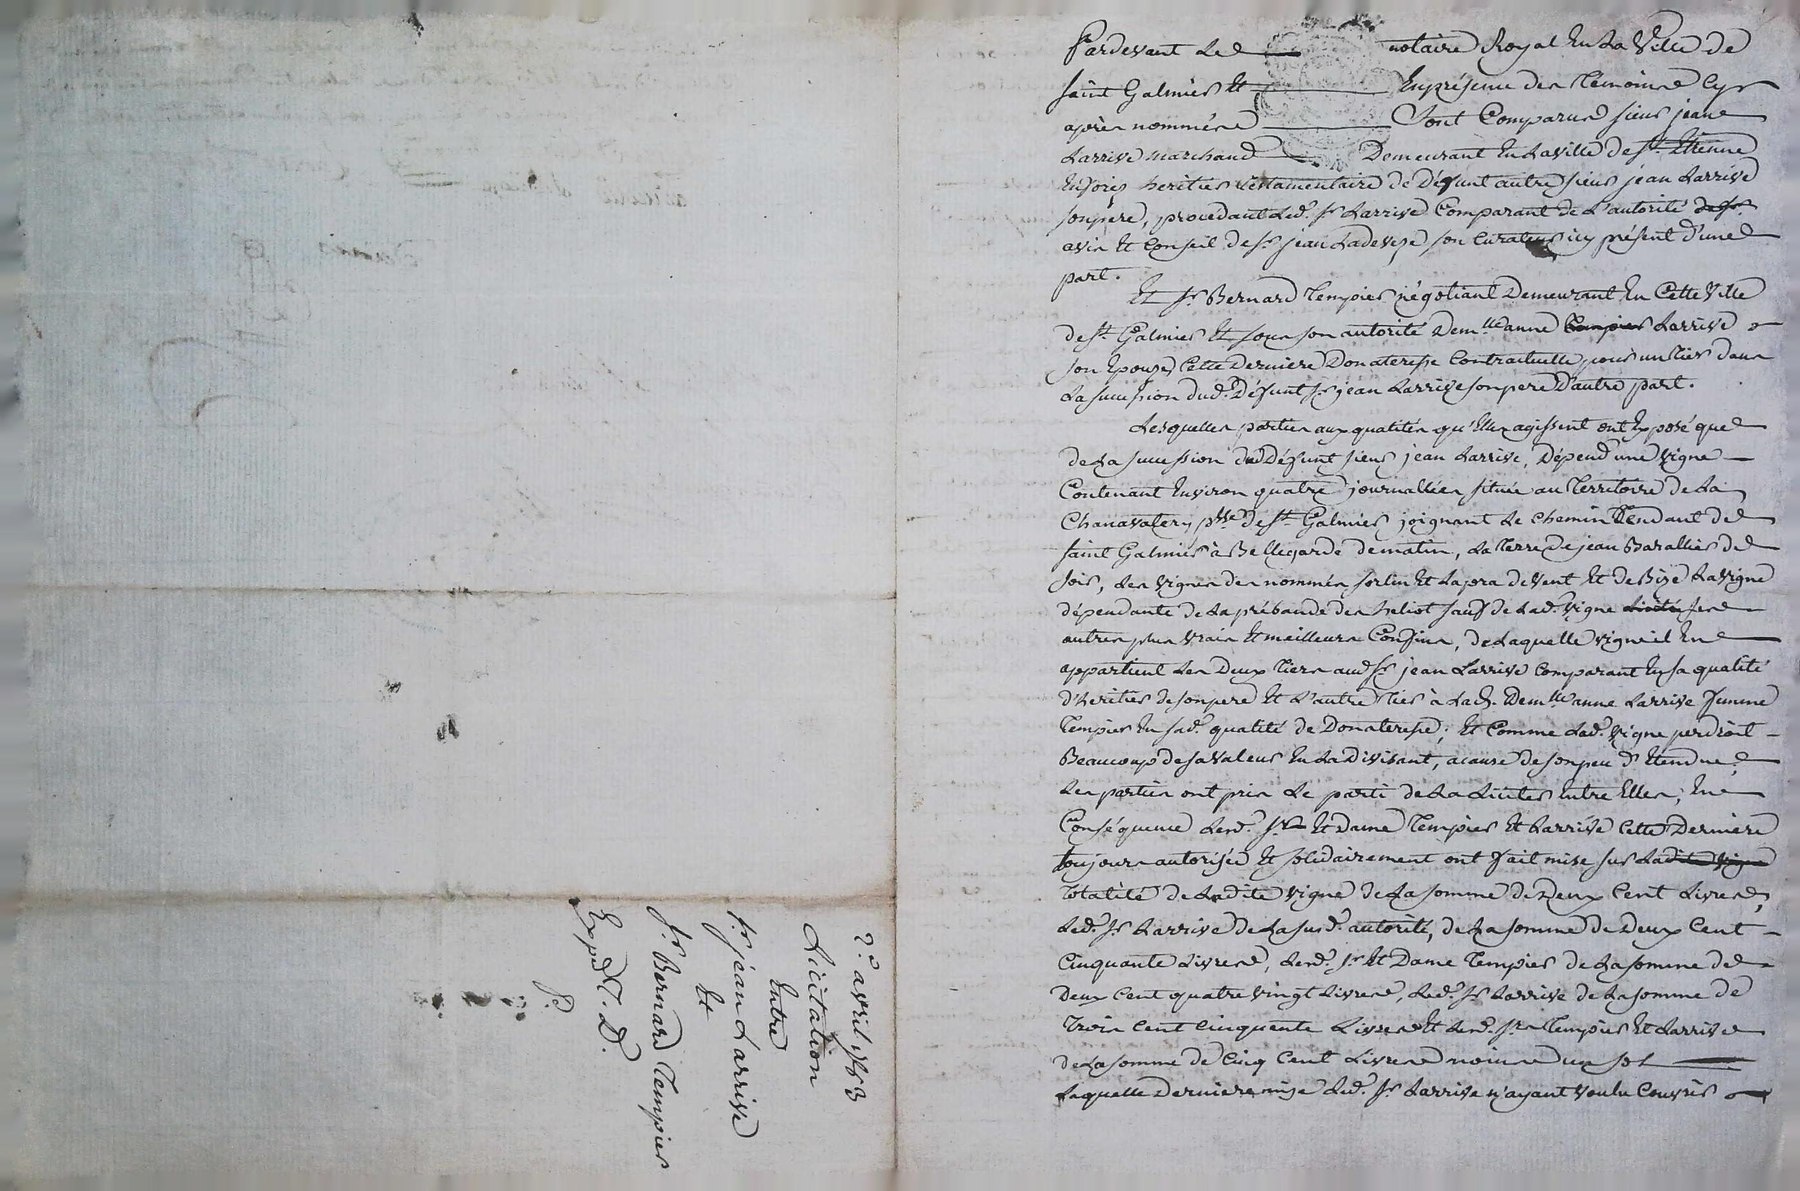 Pardevant Led notaire Royal En La Ville de
saint Galmier Et En présence des Témoins Cy
après nommés Sont Comparus sieur jean
Larrive marchand Demeurant En La ville de St. Etienne
héritier testamentaire de Défunt autre sieur jean Larrive
son père, procédant Led. Sr Larrive Comparant de L'autorité
avis Et Conseil de Sr jean Ladeveze, son Curateur icy présent d'une
part.
Et Sr Bernard Tempier négotiant Demeurant En Cette Ville
de St Galmier Et sous son autorité Demlle anne Larrive
son Epouse, Cette Derniere Donateresse Contractuelle pour un tier dans
La succession dud. Défunt Sr jean Larrive son pere D'autre part.
Lesquelles parties aux qualités qu'Elles agissent ont Exposé que
de La succession dud Défunt sieur jean Larrive, Dépend une vigne
Contenant Environ quatre journallées située au Territoire de La
Chanavalery psse de St Galmier joignant Le chemin Tendant de
saint Galmier à Bellegarde de matin, La Terre de jean Barallier de
soir, Les vignes des nommés sorlin Et Lapra de vent Et de Bise La vigne
dépendante de La prébande des heliot sauf de Lad. vigne ses
autres plus vrais Et meilleurs Confins, de Laquelle vigne il En
appartient Les Deux tiers aud Sr jean Larrive Comparant En sa qualité
d'heritier de son pere Et L'autre tier à Lad. Demlle anne Larrive femme
Tempier En sad. qualité de Donateresse; Et Comme Lad. Vigne perdroit
Beaucoup de sa valeur En La divisant, a cause de son peu d'Etendue
Les parties ont pris Le parti de La Liciter Entre Elles; En
Conséquence Lesd. Sr Et Dame Tempier Et Larrive Cette Derniere
toujours autorisée Et solidairement ont fait mise sur Ladite vigne
totalité de Ladite vigne de La somme de Deux Cent Livres,
Led. Sr Larrive de La susd. autorité, de La somme de Deux Cent
Cinquante Livres, Lesd. Sr Et Dame Tempier de La somme de
Deux Cent quatre vingt Livres, Led. Sr Larrive de La somme de
Trois Cent Cinquante Livres Et Lesd. Srs Tempier Et Larrive
de La somme de Cinq Cent Livres moins un sol
Laquelle Derniere mise Led. Sr Larrive n'ayant voulu Couvrir
avril 1763
Licitation
Entre
Sr jean Larrive
Et
Sr Bernard Tempier
Exp.